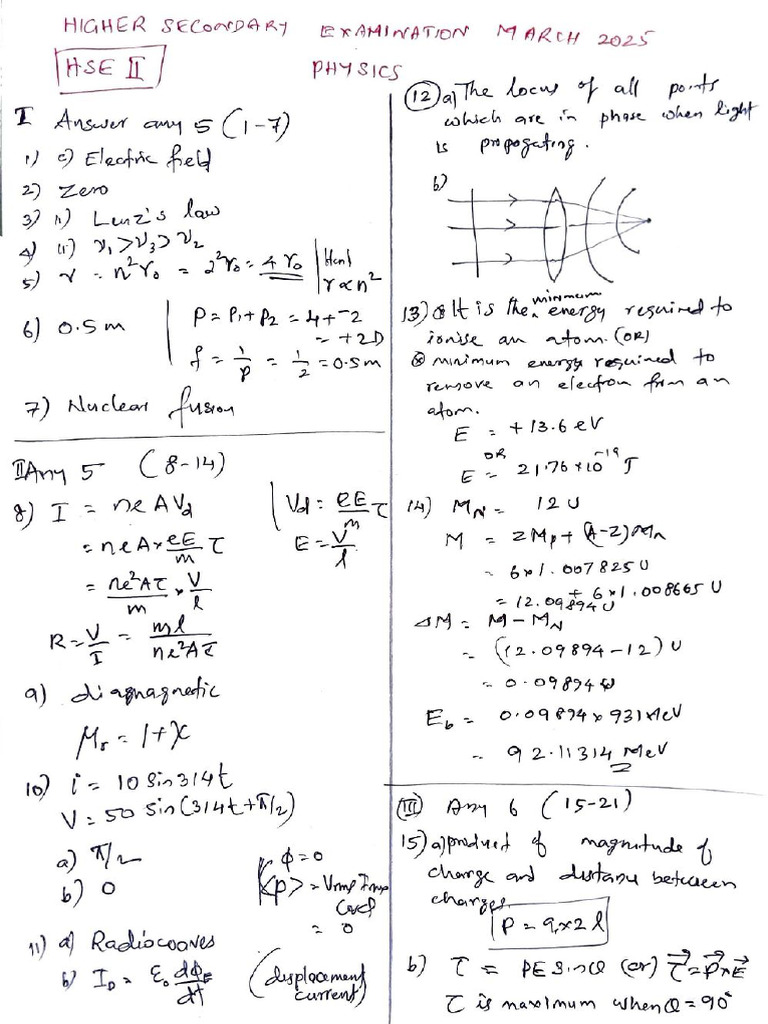 HIGHER SECONDARY EXAMINATION MARCH 2025
HSE II
PHYSICS
I Answer any 5 (1-7)
1) c) Electric field
2) Zero
3) ii) Lenz's law
4) (ii) ν₁>ν₃>ν₂
5) r = n²r₀ = 2²r₀ = 4r₀
r∝n²
6) 0.5m
P = P₁+P₂ = 4+-2
= +2D
f = 1/P = 1/2 = 0.5m
7) Nuclear fusion
II Any 5 (8-14)
8) I = neAVd
Vd = eE/m τ
= neA×eE/m τ
E = V/l
= ne²Aτ/m × V/l
R = V/I = ml/ne²Aτ
9) diamagnetic
μr = 1+χ
10) i = 10 Sin314t
V = 50 Sin(314t+π/2)
a) π/2
b) 0
ϕ=0
<P> = Vrmp Irmp
Cosϕ
= 0
11) a) Radiowaves
b) ID = ε₀ dϕE/dt (displacement current)
12) a) The locus of all points
which are in phase when light
is propogating.
b)
13) It is the minimum energy required to
ionise an atom. (OR)
minimum energy required to
remove an electron from an
atom.
E = +13.6 eV
OR
E = 21.76×10⁻¹⁹ J
14) MN = 12 U
M = ZMp + (A-Z)Mn
= 6×1.007825U
+ 6×1.008665U
= 12.09894U
ΔM = M - MN
= (12.09894-12)U
= 0.09894U
Eb = 0.09894×931MeV
= 92.11314 MeV
III Any 6 (15-21)
15) a) product of magnitude of
charge and distance between
charges.
P = q×2l
b) τ = PE Sinθ (or) τ⃗ = P⃗×E⃗
τ is maximum when θ = 90°